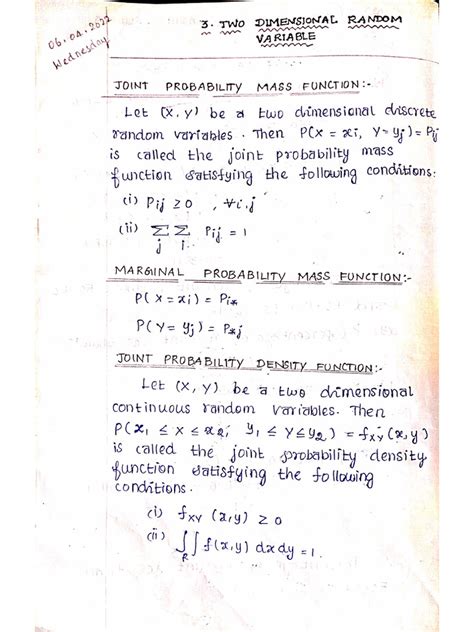 06.04.2022
Wednesday
3. TWO DIMENSIONAL RANDOM
VARIABLE
JOINT PROBABILITY MASS FUNCTION:-
Let (X, Y) be a two dimensional discrete
random variables. Then P(X = xi, Y = yj) = Pij
is called the joint probability mass
function satisfying the following conditions:
(i) Pij ≥ 0 , ∀ i.j
(ii) Σ Σ Pij = 1
j i
MARGIINAL PROBABILITY MASS FUNCTION:-
P( X = xi) = Pi*
P(Y= yj) = P*j
JOINT PROBABILITY DENSITY FUNCTION:-
Let (X, Y) be a two dimensional
continuous random variables. Then
P(x1 ≤ X ≤ x2; y1 ≤ Y ≤ y2) = fxy (x,y)
is called the joint probability density
function satisfying the following
conditions.
(i) fxy (x,y) ≥ 0
(ii) ∫∫ f(x,y) dxdy = 1.
R